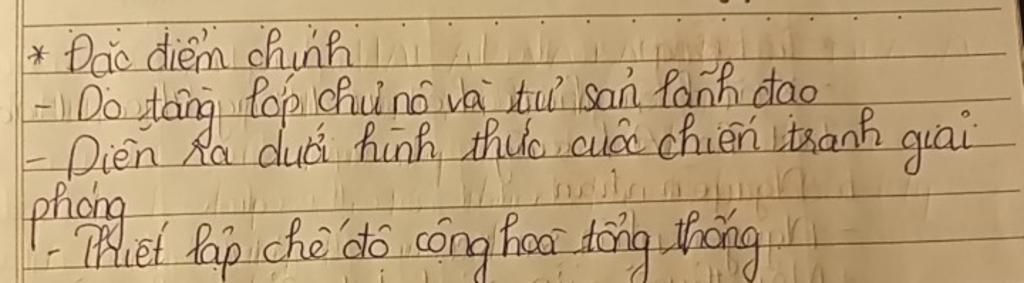 * Đặc điểm chính
- Do tầng lớp chủ nô và tư sản lãnh đạo
- Diễn ra dưới hình thức cuộc chiến tranh giải
phóng
- Thiết lập chế độ cộng hoà tổng thống